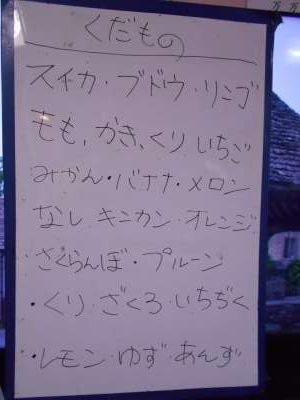 くだもの
スイカ・ブドウ・リンゴ
もも、かき、くり いちご
みかん・バナナ・メロン
なし キンカン・オレンジ
さくらんぼ・プルーン
・くり・ざくろ・いちぢく
・レモン・ゆず・あんず